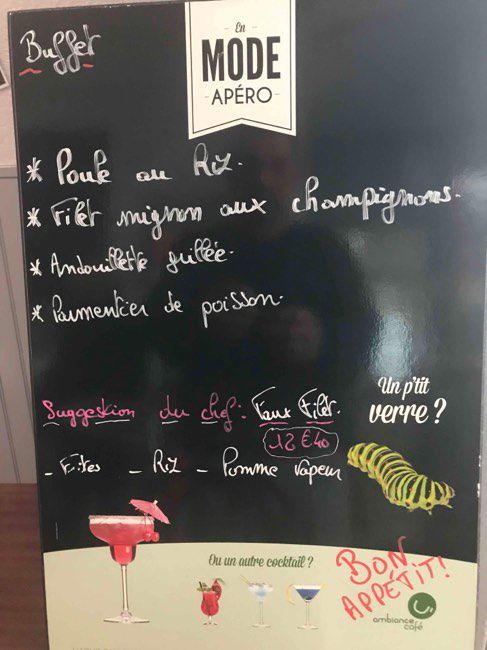 En
MODE
APÉRO
Buffet
* Poule au Riz.
* Filet mignon aux champignons.
* Andouillette grillée.
* Parmentier de poisson.
Suggestion du chef: Faux Filet.
12€40
- Frites - Riz - Pomme vapeur
Un p'tit
verre ?
Ou un autre cocktail ?
BON
APPÉTIT!
ambiance
café